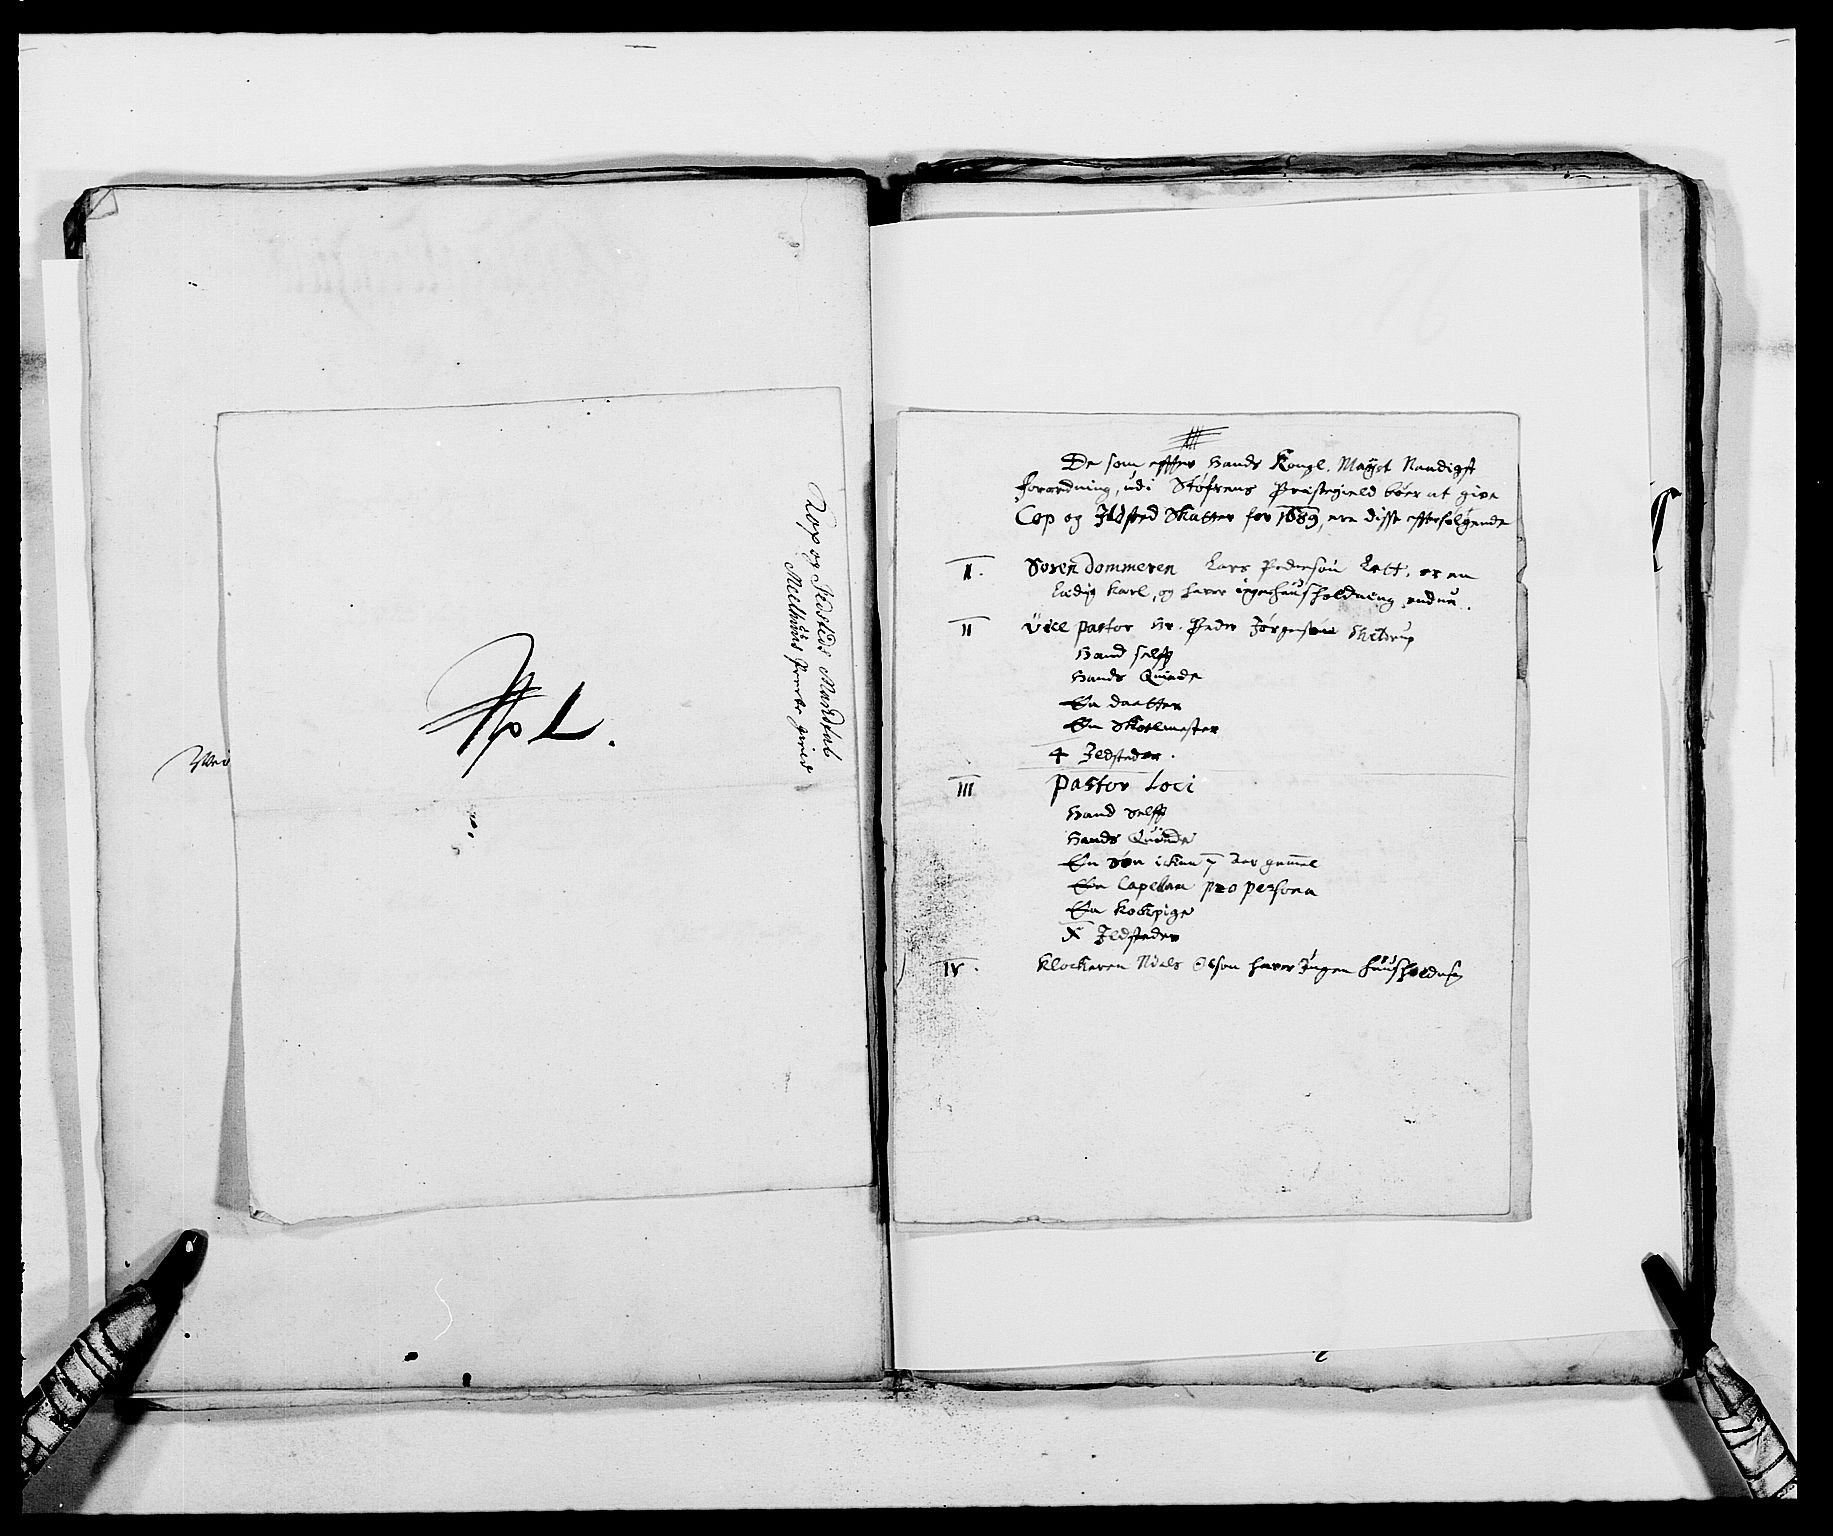 Kop og Ildsteds Mandtal
Meelhuus Præste gield
No 1.
De som effter Hands Kongl. Mayst Naadigst
forordning, udi Støfrens Præstegield bøer at give
Cop og Ildsted Skatter for 1689, ere disse efterfølgende
I. Soren dommeren Lars Pedersøn Lett, er en
Ledig Karl, og haver ingen huusholdning endnu.
II Vice pastor Hr. Peder Jørgensøn
Hand selff
Hands Quinde
En daatter
En Skolemester
4 Ildsteder.
III Pastor Loci
Hand selff
Hands Quinde
En søn ickun 7 aar gamel
En Capellan pro persona
En Kockpige
X Ildsteder
IV. Klockeren Niels Olson haver Ingen huusholdning